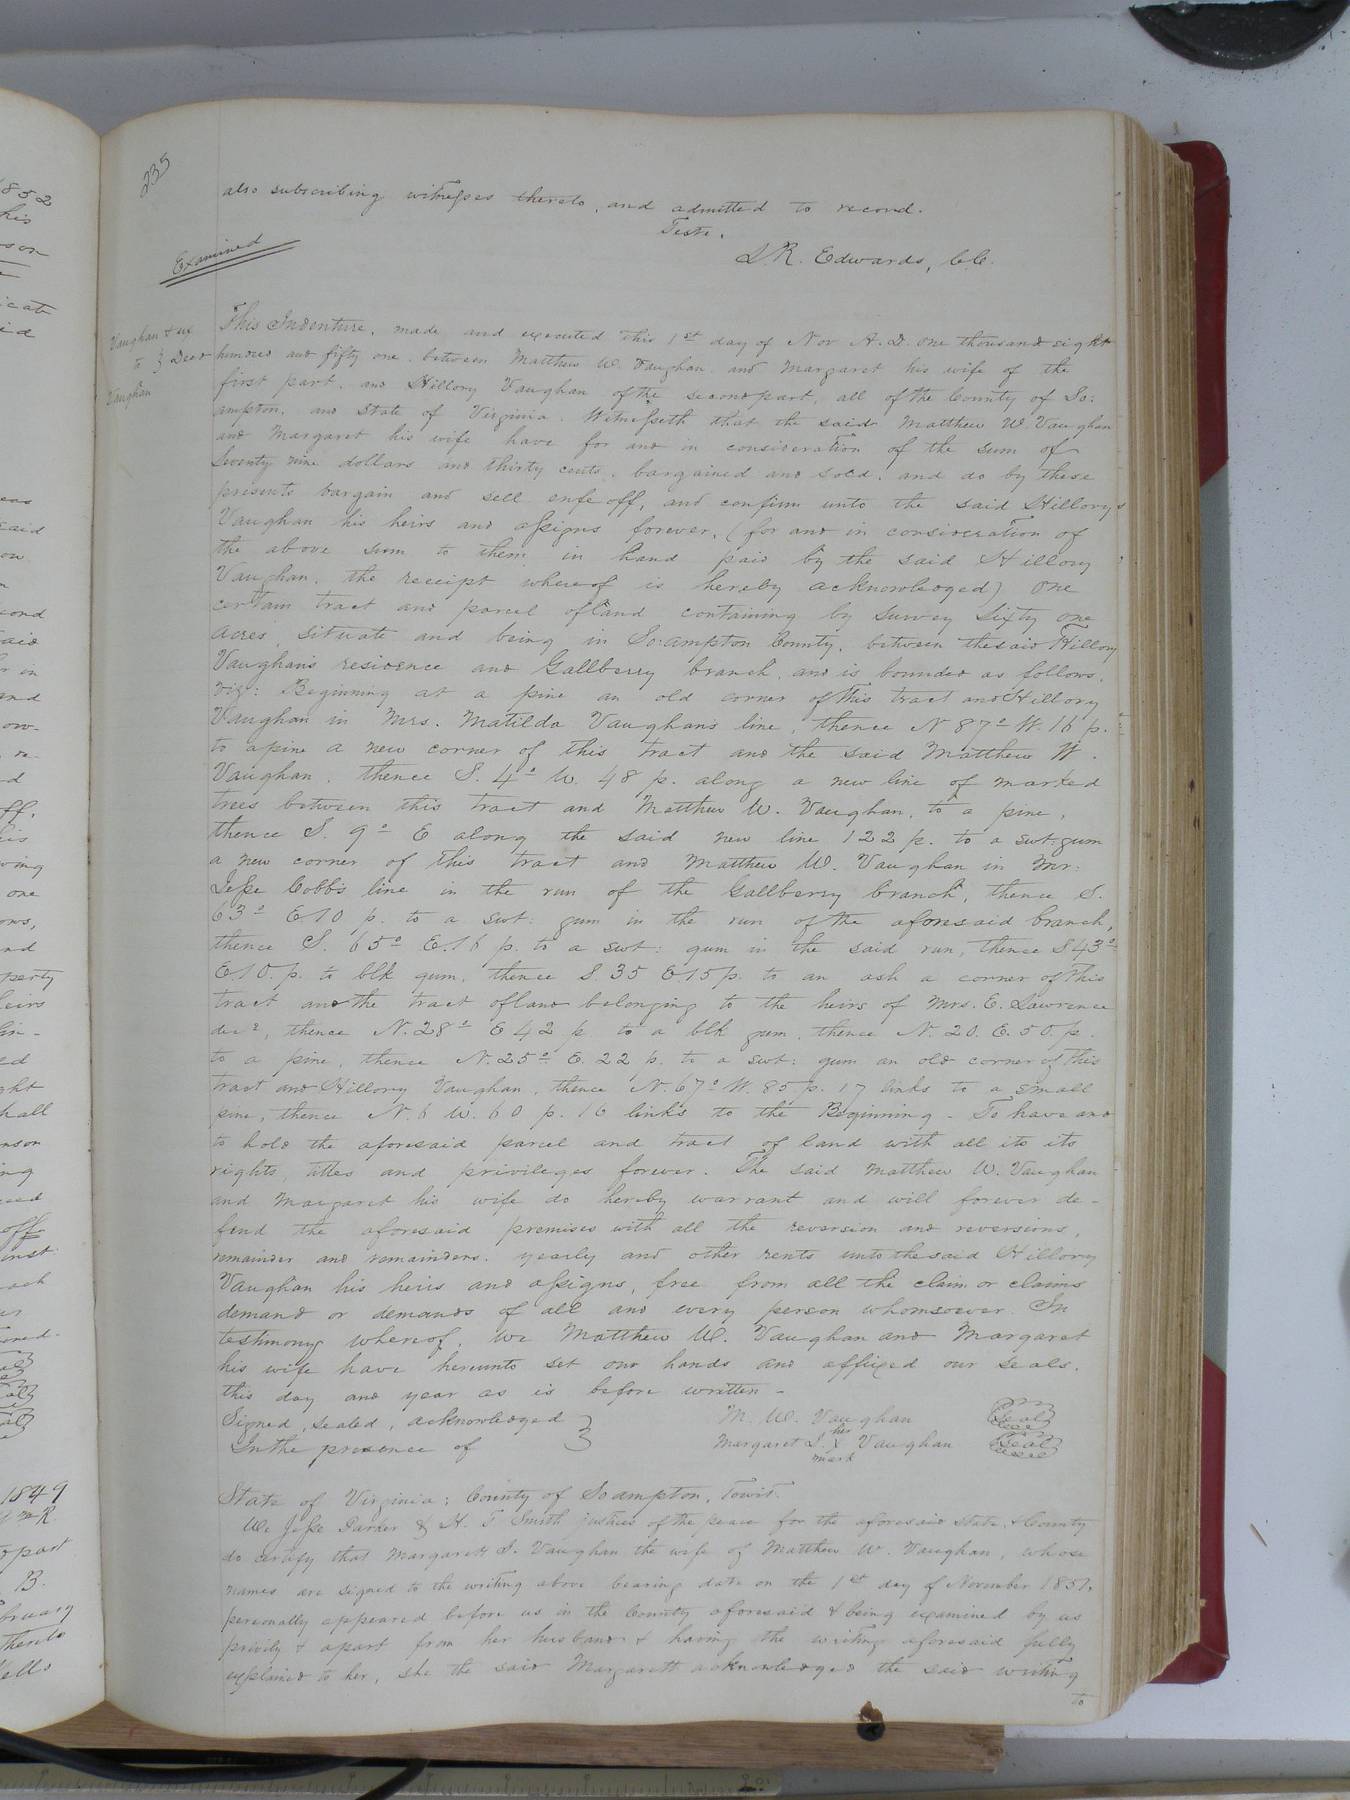 235
also subscribing witnesses thereto, and admitted to record.
Teste.
L. R. Edwards, C.C.
Examined
Vaughan & ux
to } Deed
Vaughan
This Indenture, made and executed this 1st day of Nov A.D. one thousand eight
hundred and fifty one between Matthew W. Vaughan and Margaret his wife of the
first part, and Hillory Vaughan of the second part, all of the County of So:
ampton, and State of Virginia. Witnesseth that the said Matthew W. Vaughan
and Margaret his wife have for and in consideration of the sum of
Seventy nine dollars and thirty cents, bargained and sold, and do by these
presents bargain and sell enfeoff, and confirm unto the said Hillory
Vaughan his heirs and assigns forever, (for and in consideration of
the above sum to them in hand paid by the said Hillory
Vaughan, the receipt whereof is hereby acknowledged) One
certain tract and parcel of land containing by survey Sixty one
Acres, situate and being in So:ampton County, between the said Hillory
Vaughan's residence and Gallberry branch, and is bounded as follows,
viz: Beginning at a pine an old corner of this tract and Hillory
Vaughan in Mrs. Matilda Vaughans line, thence N 87° W. 16 p.
to a pine a new corner of this tract and the said Matthew W.
Vaughan, thence S. 4° W. 48 p. along a new line of marked
trees between this tract and Matthew W. Vaughan, to a pine,
thence S. 9° E along the said new line 122 p. to a swt: gum
a new corner of this tract and Matthew W. Vaughan in Mr.
Jesse Cobb's line in the run of the Gallberry branch, thence S.
63° E 10 p. to a swt: gum in the run of the aforesaid branch,
thence S. 65° E. 16 p. to a swt: gum in the said run, thence S 43°
E 10. p. to blk gum, thence S 35 E 15 p. to an ash a corner of this
tract and the tract of land belonging to the heirs of Mrs. E. Lawrence
decd, thence N. 28° E 42 p. to a blk gum, thence N. 20. E. 50. p.
to a pine, thence N. 25° E. 22 p. to a swt: gum an old corner of this
tract and Hillory Vaughan, thence N. 67° W. 85 p. 17 links to a small
pine, thence N. 6 W. 60 p. 16 links to the Beginning - To have and
to hold the aforesaid parcel and tract of land with all its its
rights, titles and privileges forever. The said Matthew W. Vaughan
and Margaret his wife do hereby warrant and will forever de-
fend the aforesaid premises with all the reversion and reversions,
remainder and remainders. yearly and other rents unto the said Hillory
Vaughan his heirs and assigns, free from all the claim or claims
demand or demands of all and every person whomsoever. In
testimony whereof, we Matthew W. Vaughan and Margaret
his wife have hereunto set our hands and affixed our seals,
this day and year as is before written -
Signed, sealed, acknowledged } M. W. Vaughan Seal
In the presence of Margaret S. her X mark Vaughan Seal
State of Virginia; County of So:ampton, Towit.
We Jesse Parker & H. T. Smith justices of the peace for the aforesaid State & County
do certify that Margarett S. Vaughan the wife of Matthew W. Vaughan, whose
names are signed to the writing above bearing date on the 1st day of November 1851,
personally appeared before us in the County aforesaid & being examined by us
privily & apart from her husband & having the writing aforesaid fully
explained to her, she the said Margarett acknowledged the said writing
to